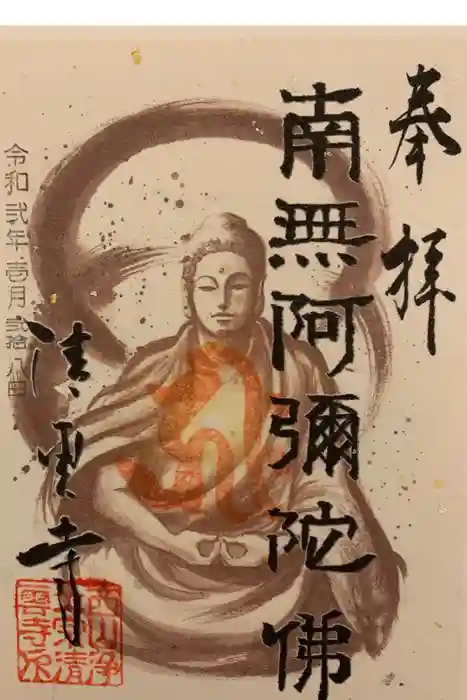 奉拝
南無阿彌陀佛
清雲寺
令和弐年壱月弐拾八日